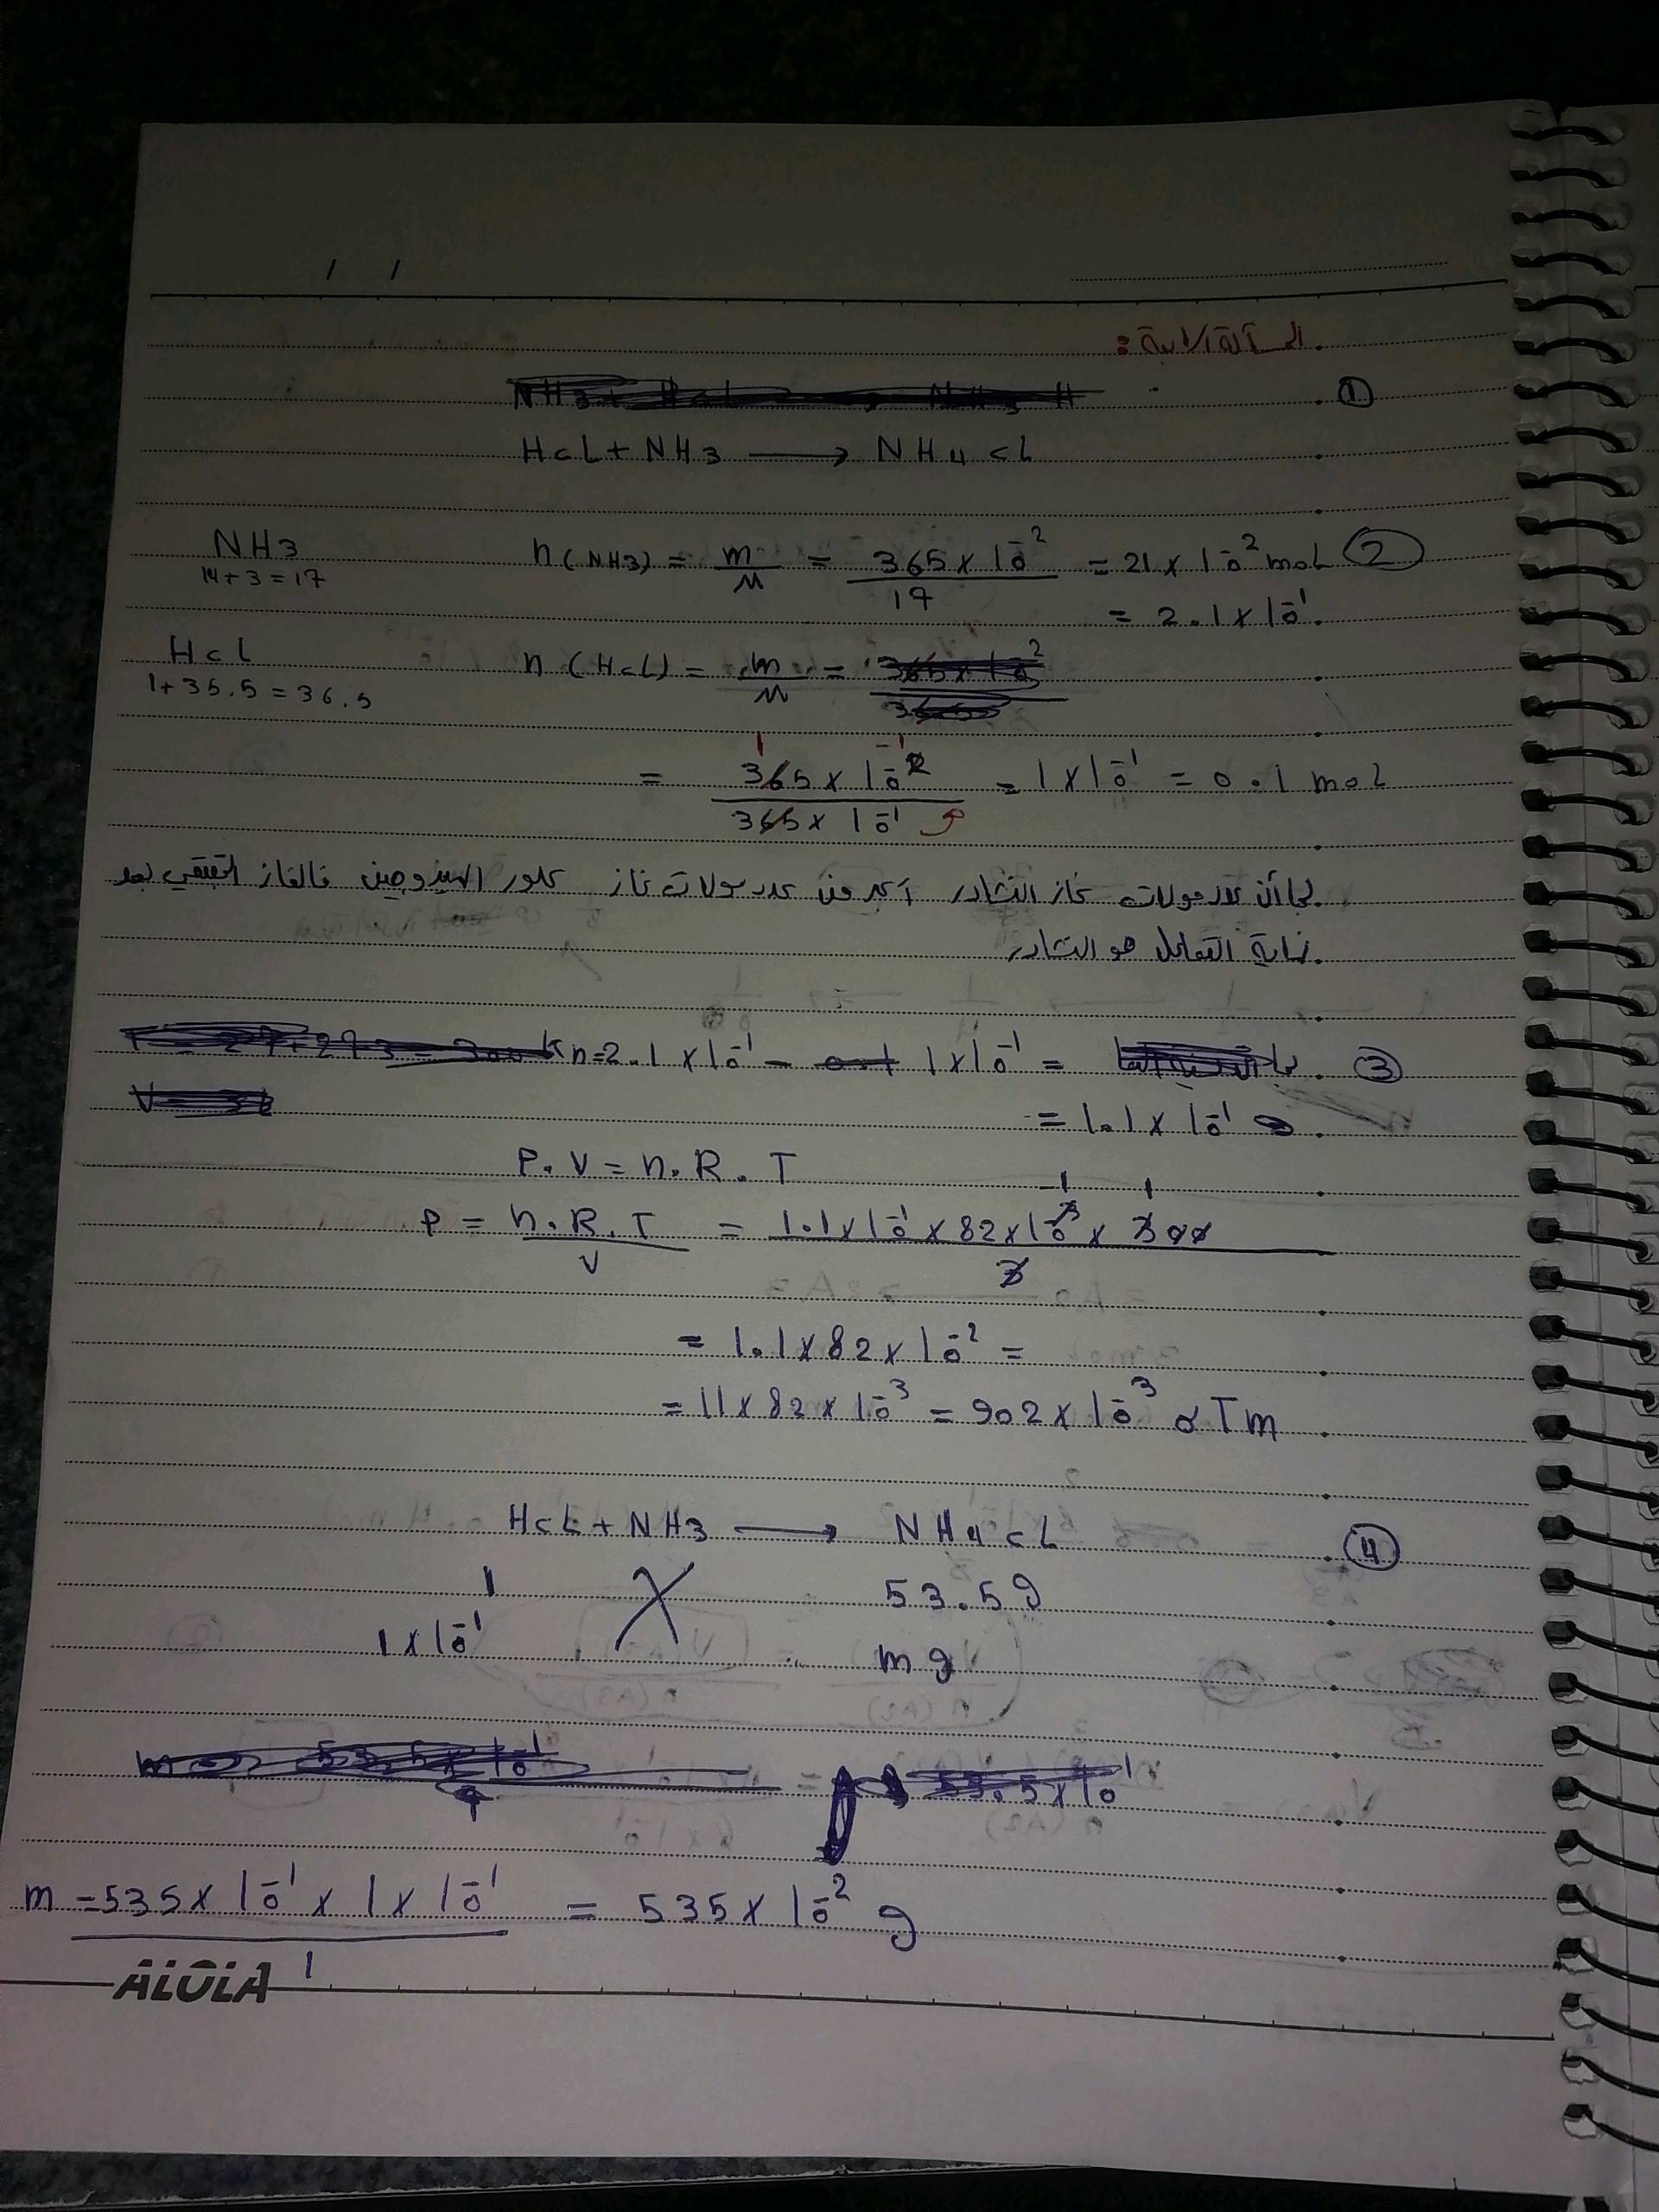 المسألة الثانية:
①
HCl + NH3 → NH4Cl
NH3
14+3=17
n(NH3) = m/M = 365 x 10^-2 / 17 = 21 x 10^-2 mol ②
= 2.1 x 10^-1
HCl
1+35.5=36.5
n(HCl) = m/M =
= 365 x 10^-2 / 365 x 10^-1 = 1 x 10^-1 = 0.1 mol
بما أن عدد مولات غاز النشادر أكبر من عدد مولات غاز كلور الهيدروجين فالغاز المتبقي بعد
نهاية التفاعل هو النشادر
n = 2.1 x 10^-1 - 1 x 10^-1 = ③
= 1.1 x 10^-1
P. V = n. R. T
P = n.R.T / V = 1.1 x 10^-1 x 82 x 10^-3 x 300 / 3
= 1.1 x 82 x 10^-2 =
= 11 x 82 x 10^-3 = 902 x 10^-3 aTm
HCl + NH3 → NH4Cl ④
1 53.5 g
1 x 10^-1 m g
m = 535 x 10^-1 x 1 x 10^-1 / 1 = 535 x 10^-2 g
ALOLA